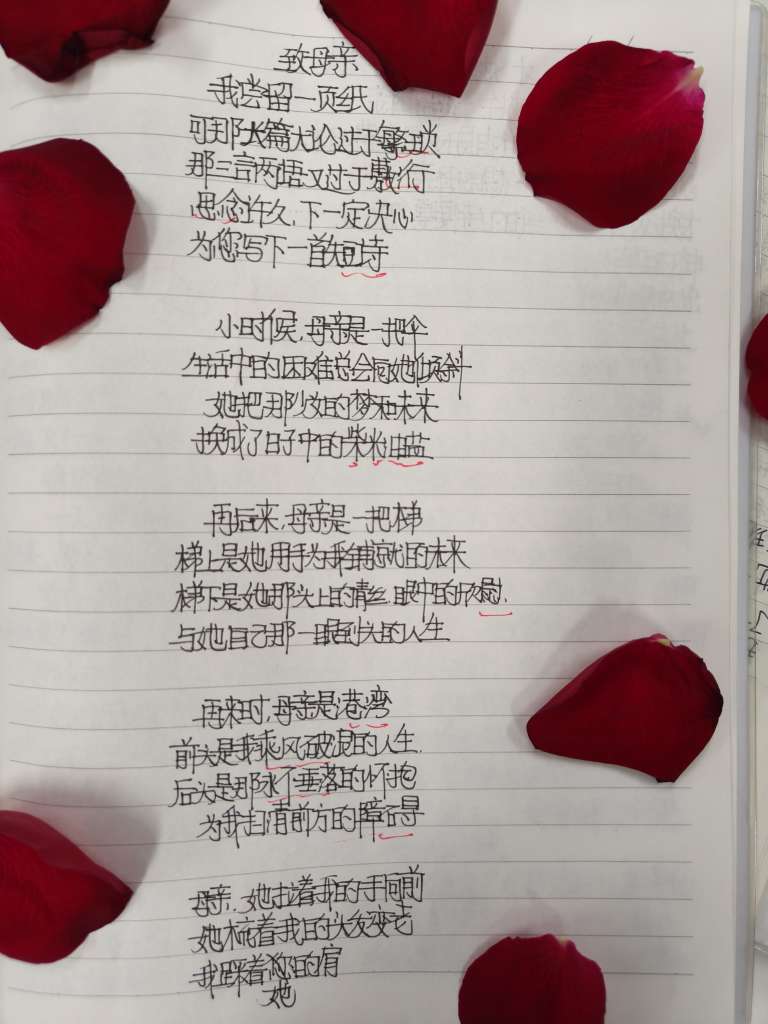 致母亲
我尝留一页纸
可那大篇大论过于繁琐
那三言两语又过于敷衍
思念许久,下一定决心
为您写下一首短诗
小时候,母亲是一把伞
生活中的困难总会向她倾斜
她把那少女的梦和未来
换成了日子中的柴米油盐
再后来,母亲是一把梯
梯上是她用手为我铺就的未来
梯下是她那头上的青丝.眼中的欣慰.
与她自己那一眼到头的人生
再来时,母亲是港湾
前头是我乘风破浪的人生.
后头是那永不垂落的怀抱
为我扫清前方的障碍
母亲.她拉着我的手向前
她梳着我的头发变老
我踩着您的肩
她